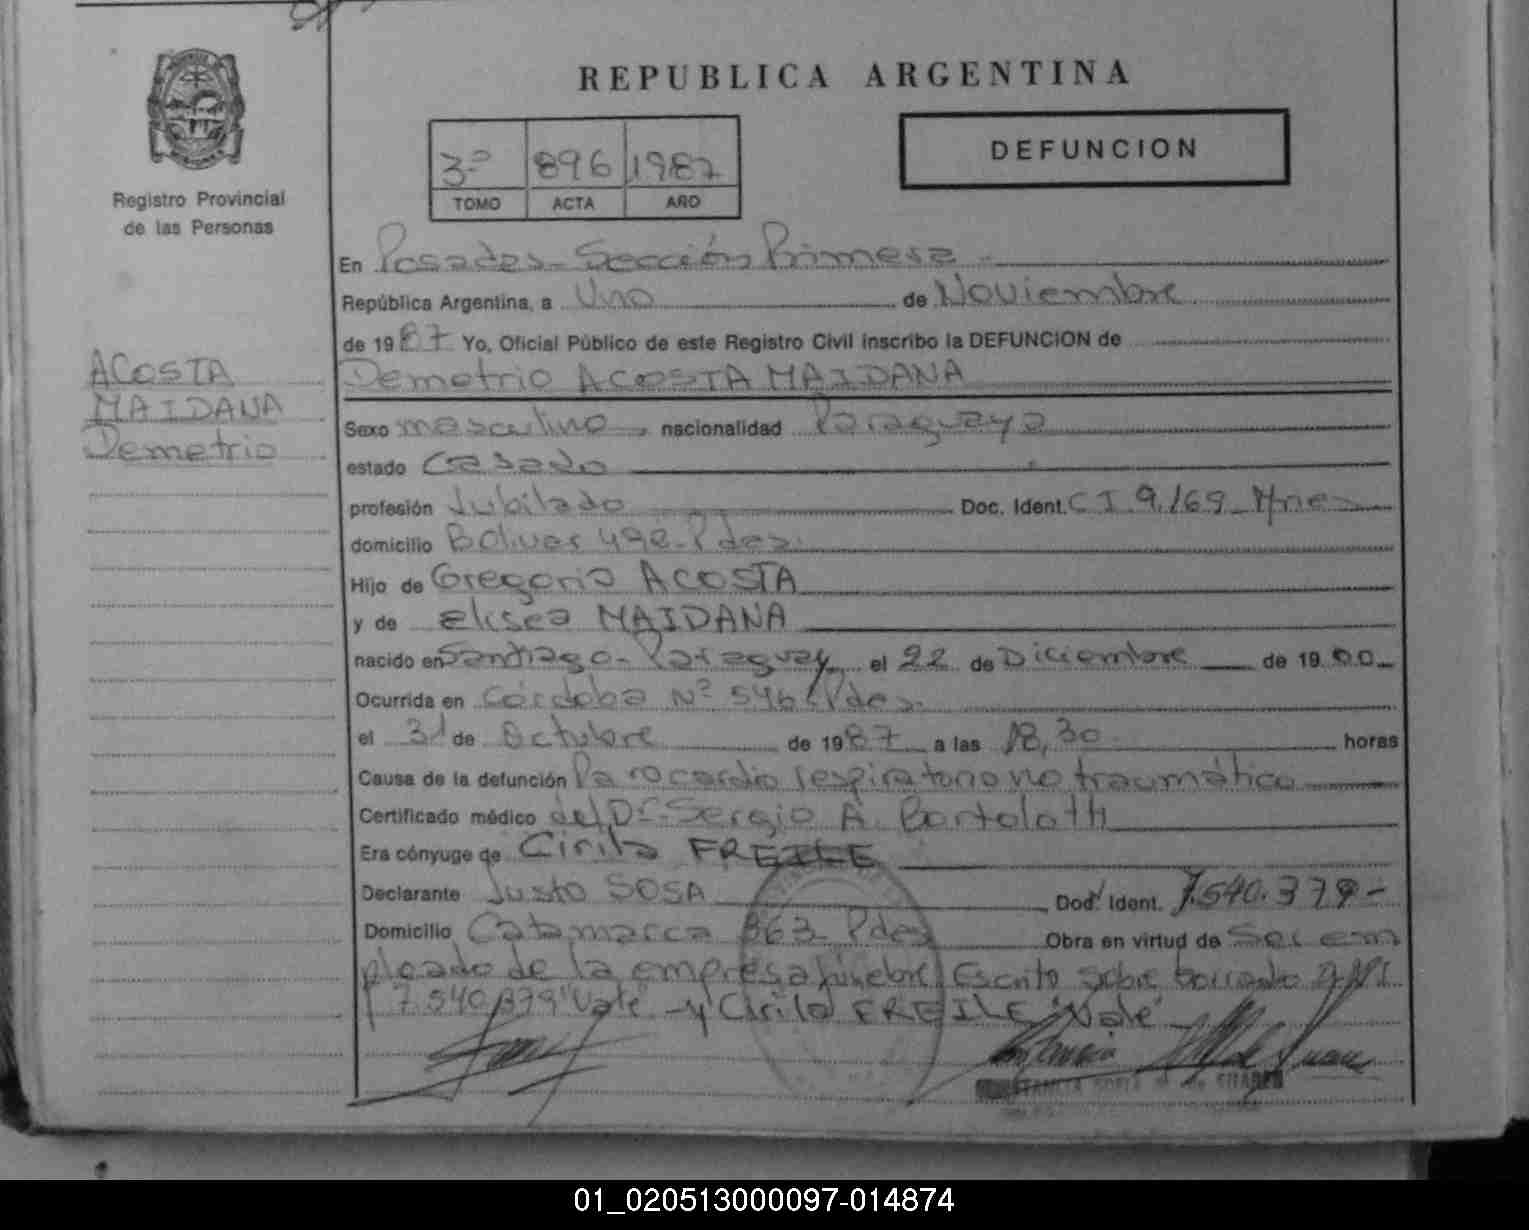 REPUBLICA ARGENTINA
DEFUNCION
3º 896 1987
TOMO ACTA AÑO
Registro Provincial
de las Personas
En Posadas - Sección Primera
República Argentina, a Uno de Noviembre
de 1987 Yo, Oficial Público de este Registro Civil inscribo la DEFUNCION de
ACOSTA
MAIDANA
Demetrio
Demetrio ACOSTA MAIDANA
Sexo masculino, nacionalidad Paraguaya
estado Casado
profesión Jubilado Doc. Ident. C I 9.169 Mnes
domicilio Bolivar Pdas.
Hijo de Gregorio ACOSTA
y de Elisea MAIDANA
nacido en Santiago - Paraguay el 22 de Diciembre de 1900
Ocurrida en Córdoba Nº 546 - Pdas.
el 31 de Octubre de 1987 a las 18,30 horas
Causa de la defunción Paro cardio respiratorio no traumático
Certificado médico del Dr. Sergio A. Bortolotti
Era cónyuge de Cirila FREILE
Declarante Justo SOSA Doc. Ident. 7.540.379-
Domicilio Catamarca 863 - Pdas Obra en virtud de Ser em
pleado de la empresa fúnebre Escrito sobre borrado
7.540.379 "Vale" - y Cirila FREILE "Vale"
01_020513000097-014874